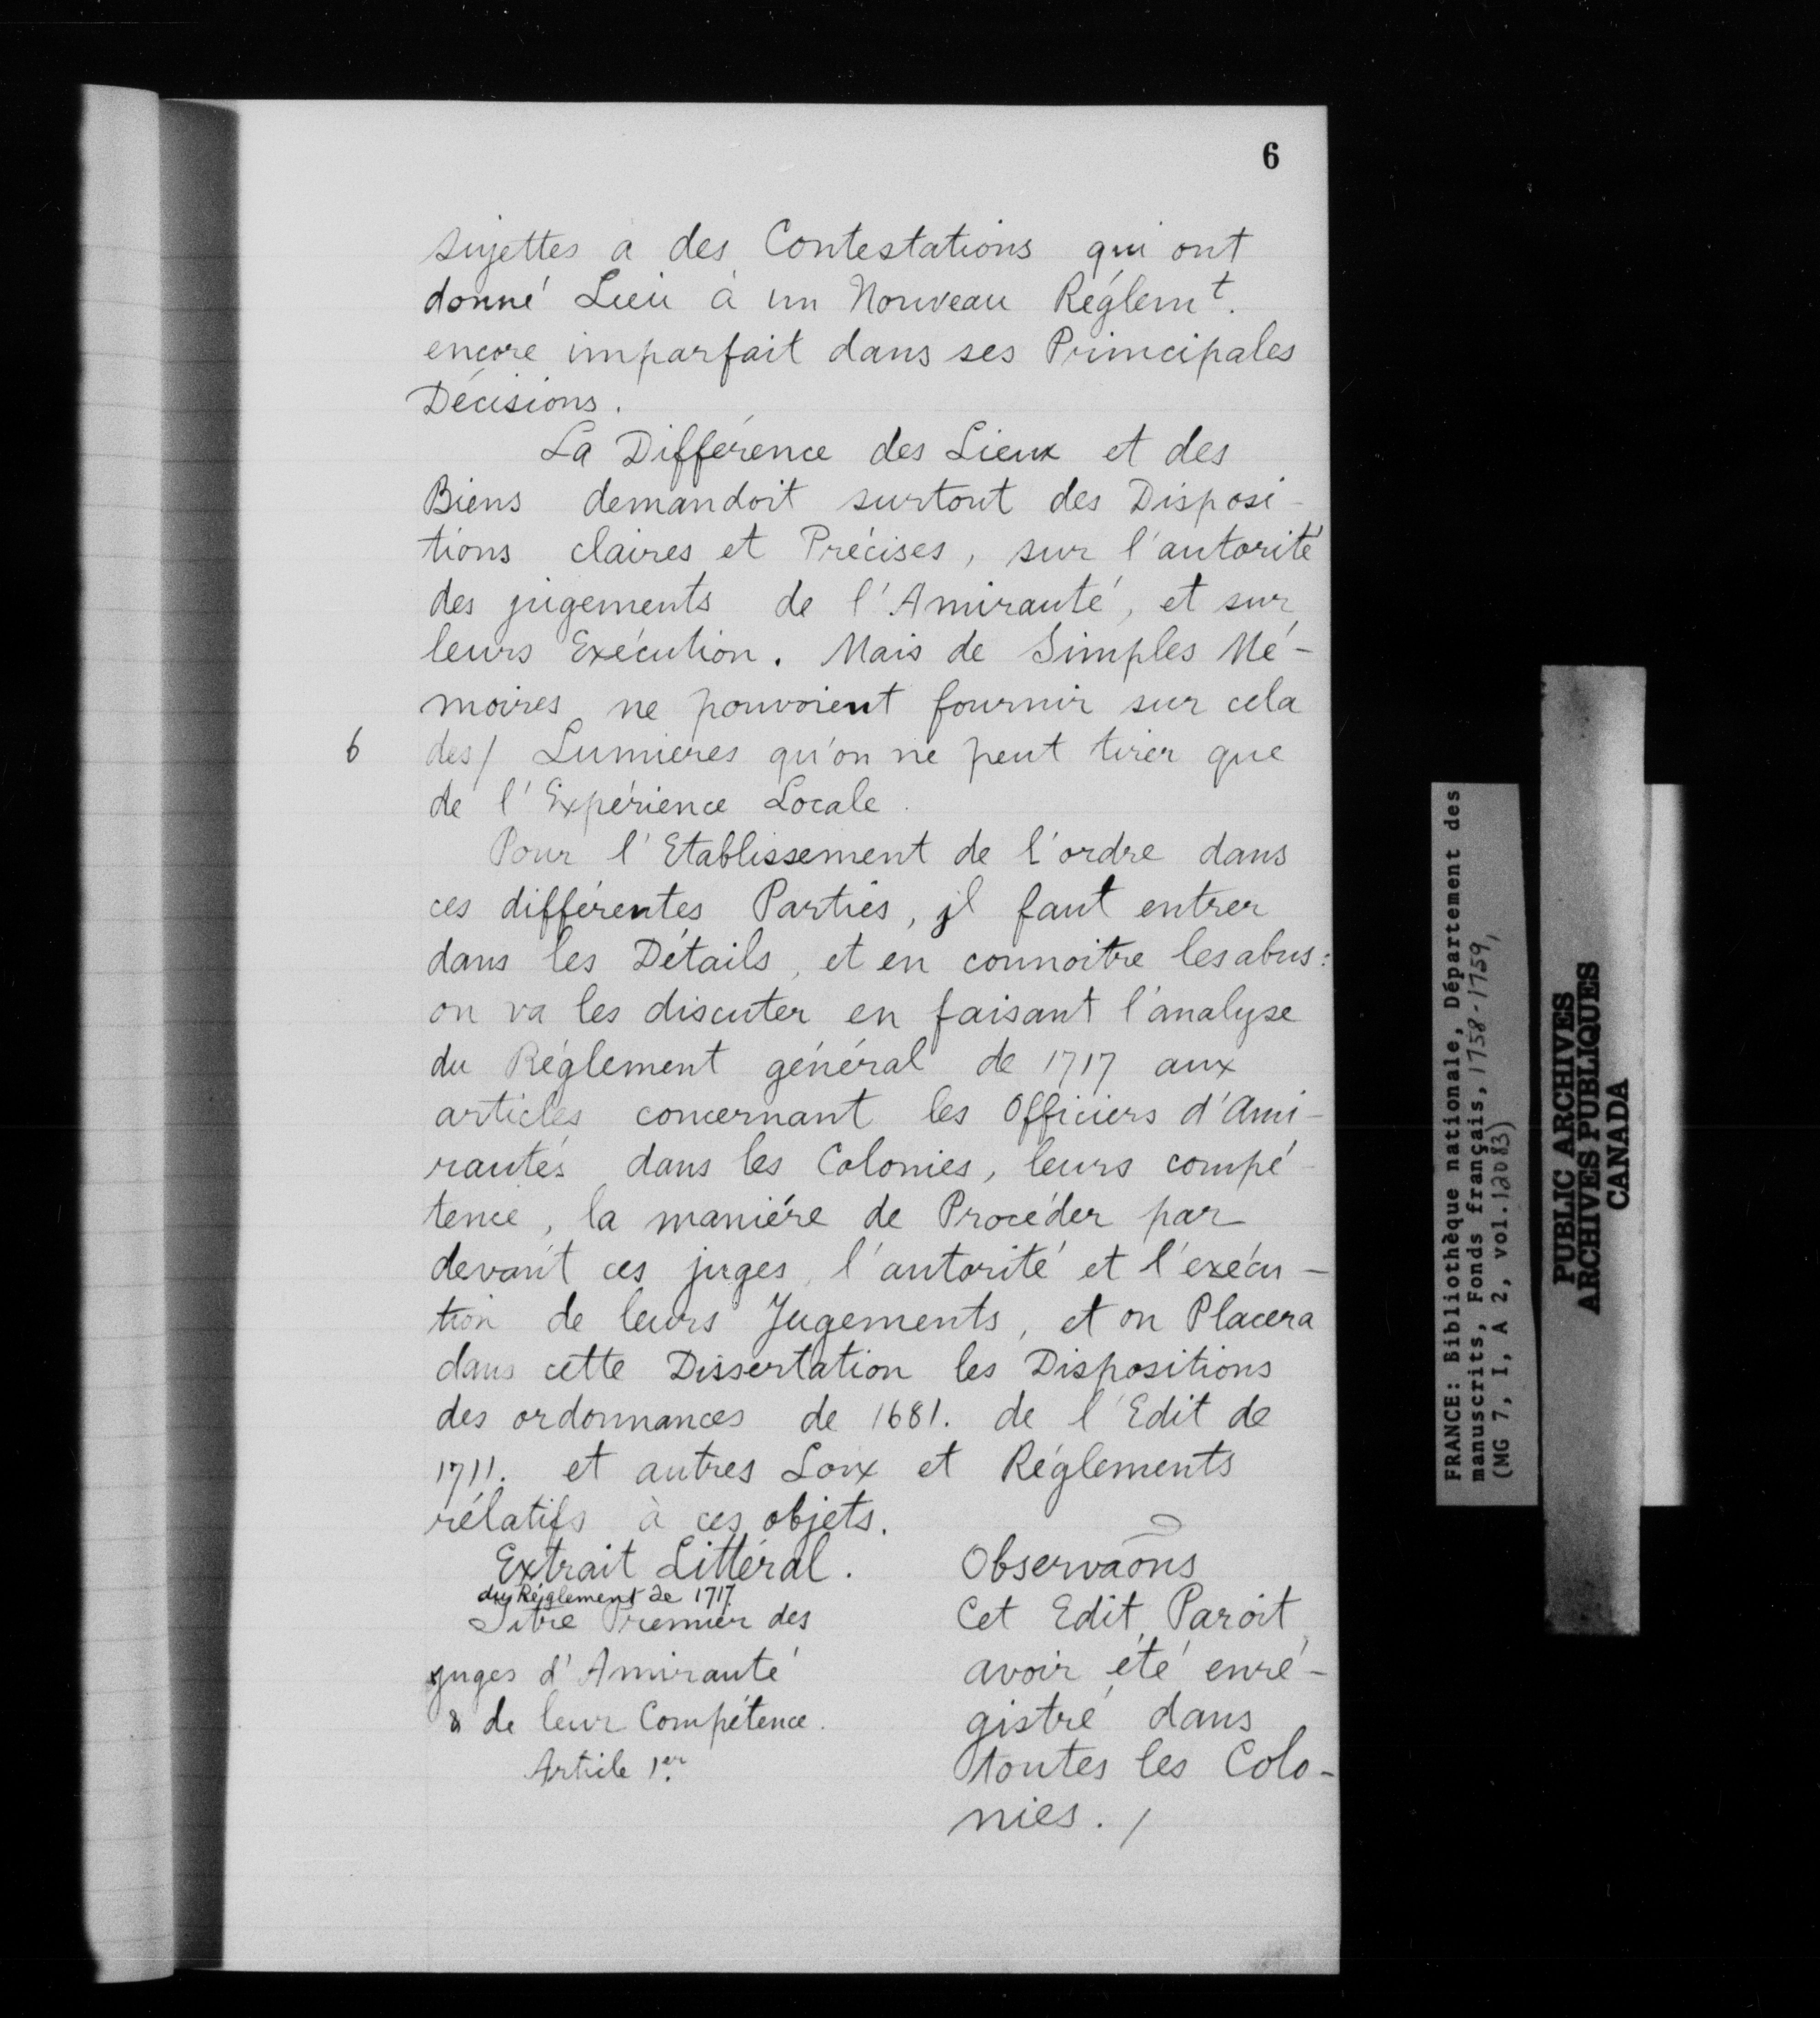 6
sujettes a des Contestations qui ont
donné Lieu à un Nouveau Réglemt.
encore imparfait dans ses Principales
Décisions.
La Différence des Lieux et des
Biens demandoit surtout des Disposi-
tions claires et Précises, sur l'autorité
des jugements de l'Amirauté, et sur
leurs Exécution. Mais de Simples Mé-
moires ne pouvoient fournir sur cela
6 des/ Lumieres qu'on ne peut tirer que
de l'Expérience Locale.
Pour l'Etablissement de l'ordre dans
ces différentes Parties, jl faut entrer
dans les Détails, et en connoitre les abus:
on va les discuter en faisant l'analyse
du Réglement général de 1717 aux
articles concernant les Officiers d'Ami-
rautés dans les Colonies, leurs compé-
tence, la maniére de Procéder par
devant ces juges, l'autorité et l'exécu-
tion de leurs Jugements, et on Placera
dans cette Dissertation les Dispositions
des ordonnances de 1681. de l'Edit de
1711. et autres Loix et Réglements
rélatifs à ces objets.
Extrait Littéral.
du Réglement de 1717.
Titre Premier des
juges d'Amirauté
& de leur Compétence.
Article 1er.
Observaons
Cet Edit Paroit
avoir été enré-
gistré dans
toutes les Colo-
nies. /
FRANCE: Bibliothèque nationale, Département des
manuscrits, Fonds français, 1758-1759,
(MG 7, I, A 2, vol. 12083)
PUBLIC ARCHIVES
ARCHIVES PUBLIQUES
CANADA